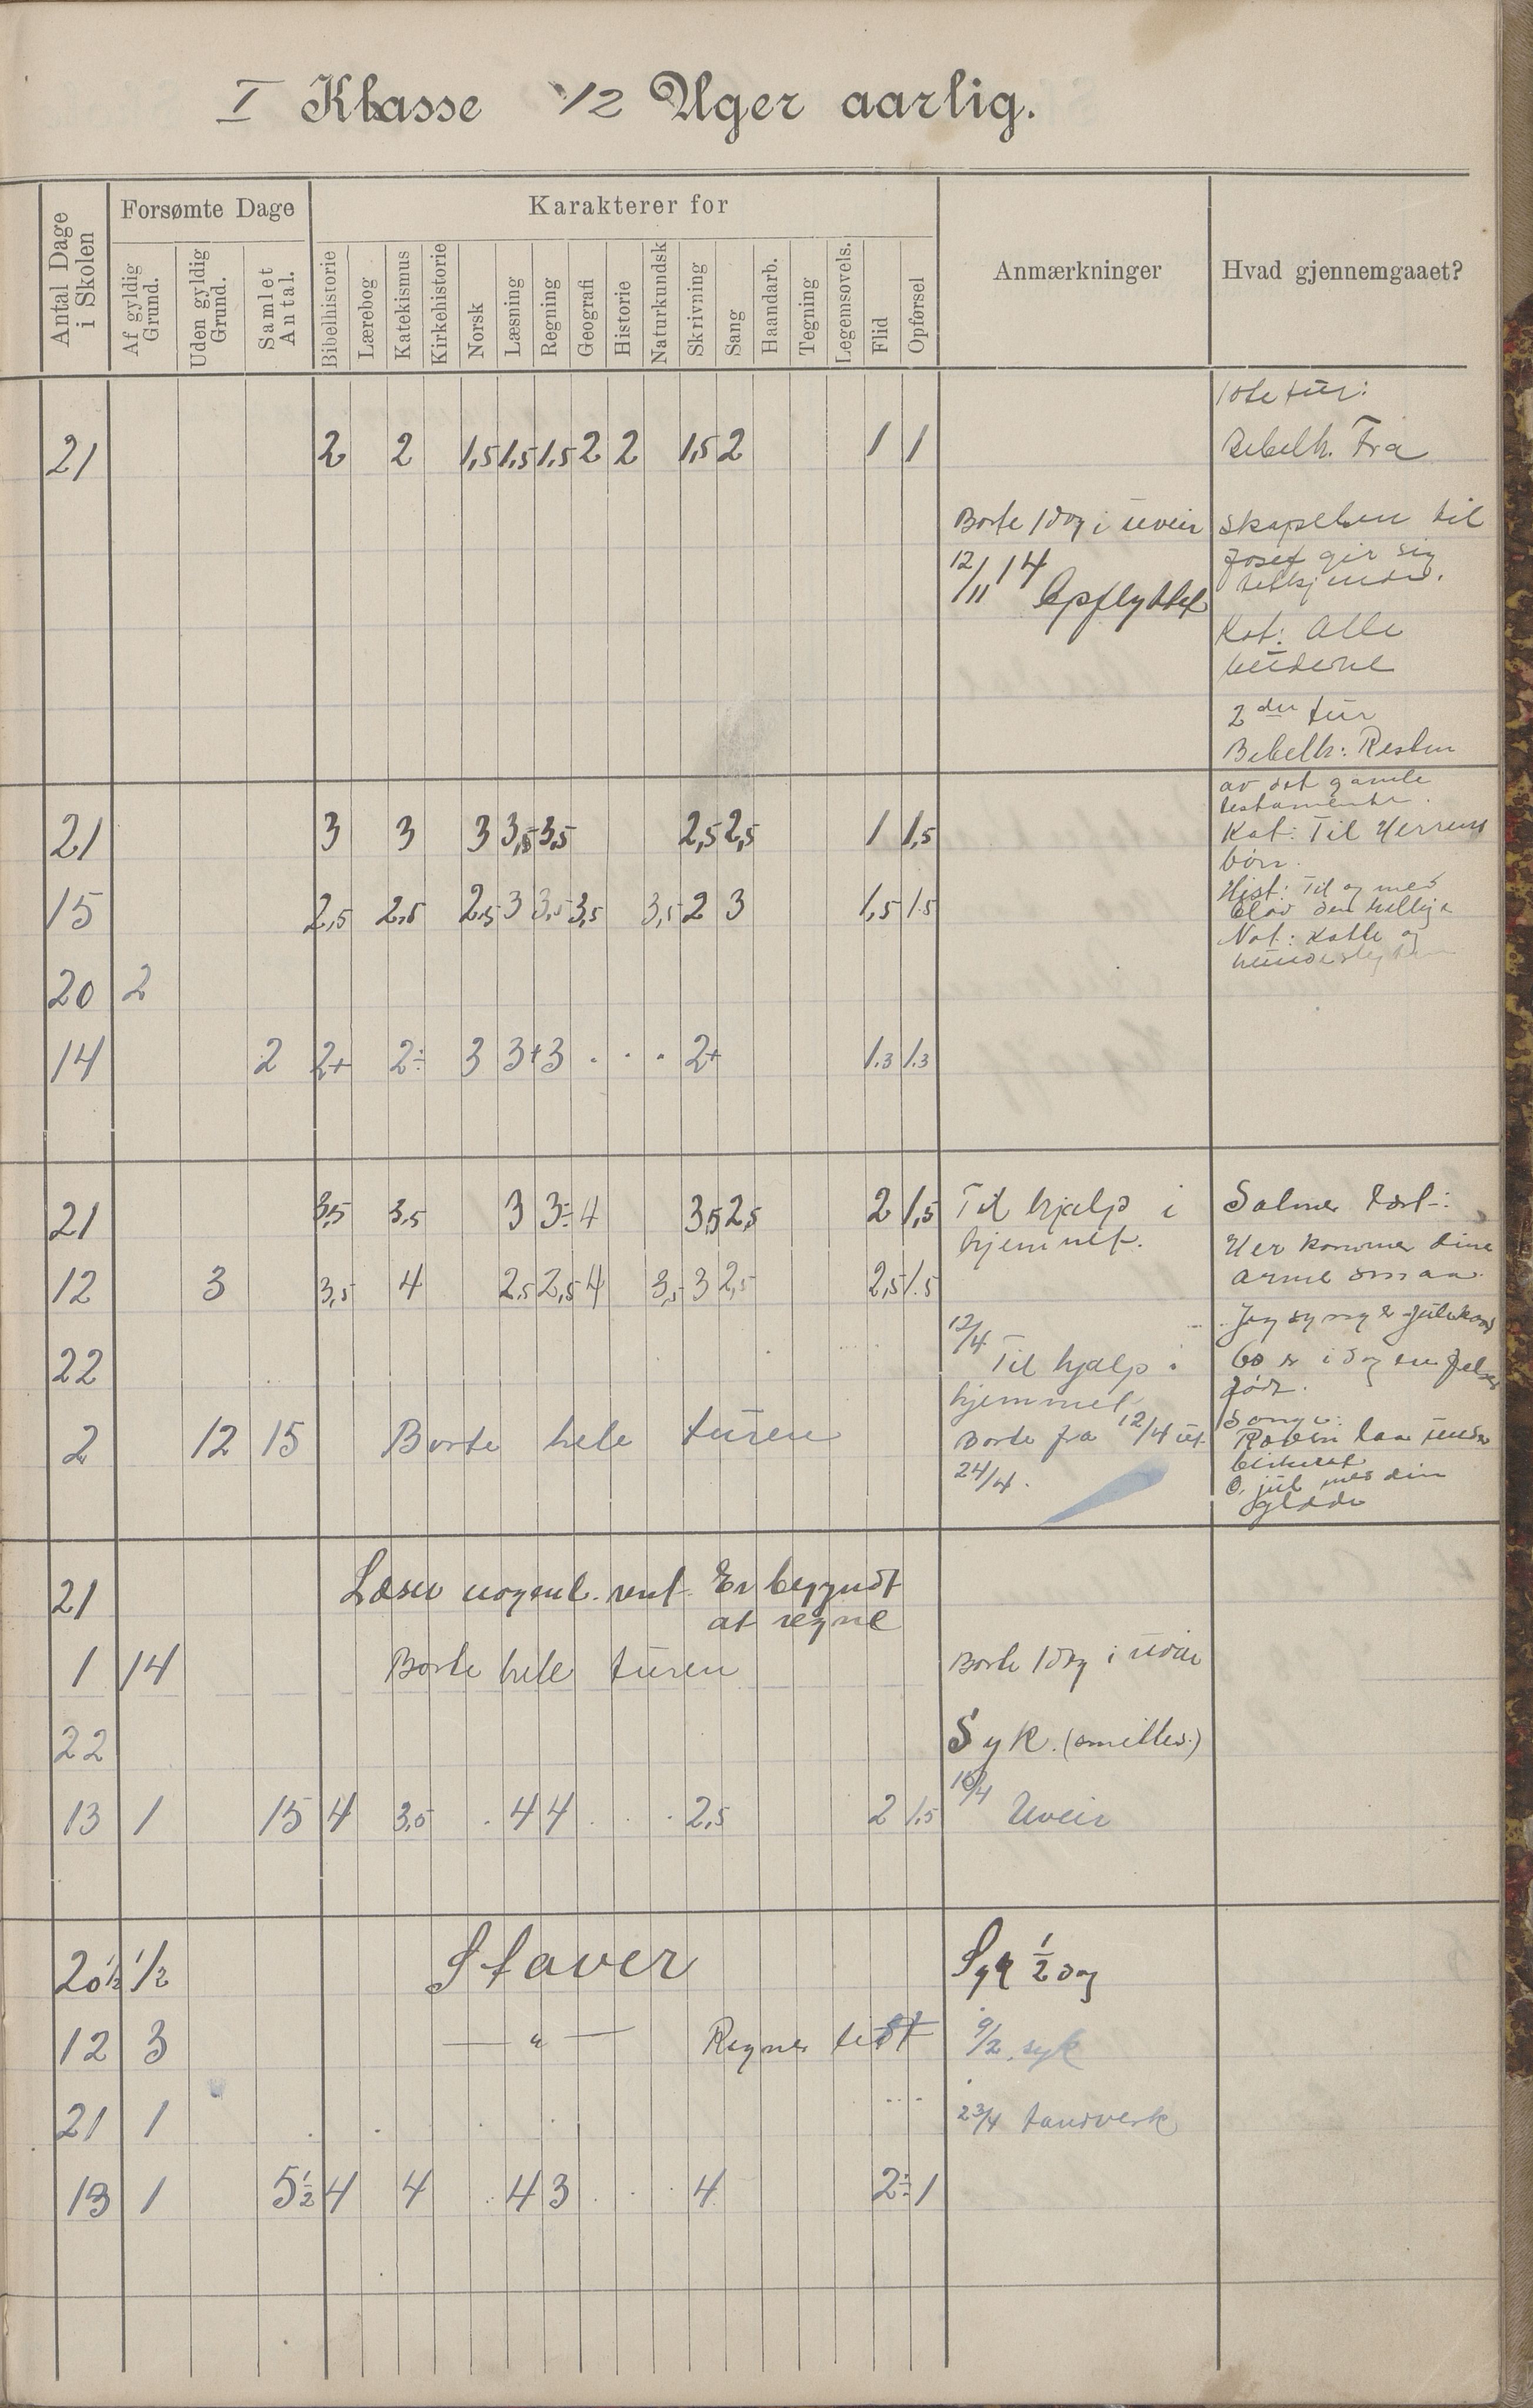 I Klasse 12 Uger aarlig.
Antal Dage i Skolen
Forsømte Dage
Af gyldig Grund.
Uden gyldig Grund.
Samlet Antal.
Karakterer for
Bibelhistorie
Lærebog
Katekismus
Kirkehistorie
Norsk
Læsning
Regning
Geografi
Historie
Naturkundsk
Skrivning
Sang
Haandarb.
Tegning
Legemsovels.
Flid
Opførsel
Anmærkninger
Hvad gjennemgaaet?
1ste tur:
21 2 2 1,5 1,5 1,5 2 2 1,5 2 1 1 Bibelh. Fra
Borte 1 dag i uveir skapelsen til
12/11 14 Josef gir sig
Opflyttet tilkjende.
Kat: Alle
budene
2den tur
Bibelh: Resten
av det gamle
testamente.
21 3 3 3 3,5 3,5 2,5 2,5 1 1,5 Kat: Til Herrens
bön.
15 2,5 2,5 2,5 3 3,5 3,5 3,5 2 3 1,5 1.5 Hist: Til og med
Olav den hellige
Nat: Katte og
20 2
14 2 2+ 2÷ 3 3+ 3 . . . 2+ 1.3 1.3
21 3,5 3,5 3 3÷ 4 3,5 2,5 2 1,5 Til hjælp i Salmer lært:
hjemmet. Her kommer dine
12 3 3,5 4 2,5 2,5 4 3,5 3 2,5 2,5 1.5 arme smaa.
12/4 Jeg synger julekvad
22 Til hjælp i Os er idag en frelser
hjemmet født.
2 12 15 Borte hele turen Borte fra 12/4 ut Sange:
24/4. Ræven laa under
birkerot
O, jul med din
glæde
21 Læser nogenl. rent. Er begyndt
at regne
1 14 Borte hele turen Borte 1 dag i uveir
22 Syk. (smittes.)
10/4
13 1 15 4 3,5 . 4 4 . . . 2,5 2 1,5 Uveir
20 1/2 1/2 Staver Syk 1/2 dag
12 3 — " — Regner litt 9/2 syk
21 1 23/4 tandverk
13 1 5 1/2 4 4 . 4 3 . . . 4 2÷ 1